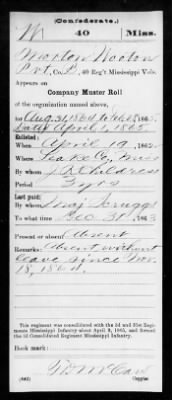 (Confederate.)
W 40 Miss.
Pvt, Co. D, 40 Reg't Mississippi Vols.
Appears on
Company Muster Roll
of the organization named above,
for Aug. 31, 1864, to
dated April 1, 1865.
Enlisted:
When April 19, 186
Where Leake Co, Miss
By whom J. A. Childress
Period 3 yrs
Last paid:
By whom Maj. Scruggs
To what time Dec 31, 1863
Present or absent Absent
Remarks: Absent without
leave since Nov.
18, 1864.
This regiment was consolidated with the 3d and 31st Regiments Mississippi Infantry about April 9, 1865, and formed the 3d Consolidated Regiment Mississippi Infantry.
Book mark:
(642)
Copyist.